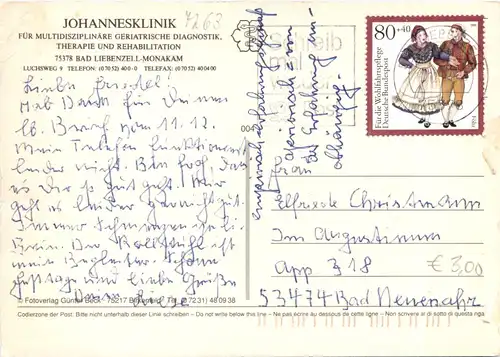 JOHANNESKLINIK
FÜR MULTIDISZIPLINÄRE GERIATRISCHE DIAGNOSTIK,
THERAPIE UND REHABILITATION
75378 BAD LIEBENZELL-MONAKAM
LUCHSWEG 9 TELEFON: (0 70 52) 40 0-0 TELEFAX: (0 70 52) 40 04 00
7263
Liebe Friedel!
Hab Dank für Deinen
lb. Brief vom 11.12.
Mein Telefon funktioniert
leider nicht. Bin froh, daß
es Dir so gut geht. Mir
geht es leider garnicht gut
Immer Schmerzen im li.
Bein. Der Rollstuhl ist
mein Begleiter. Schöne
Festtage und liebe Grüße
004
abhängig.
80+40
Für die Wohlfahrtspflege
Deutsche Bundespost
Frau
Elfriede Christmann
Im Augustinum
App 318
€ 3,00
53474 Bad Neuenahr
© Fotoverlag Günter Beck · 75217 Birkenfeld · Tel. (0 72 31) 48 09 38
Codierzone der Post. Bitte nicht unterhalb dieser Linie schreiben – Do not write below this line – Ne pas écrire au dessous de cette ligne – Non scrivere al di sotto di questa riga